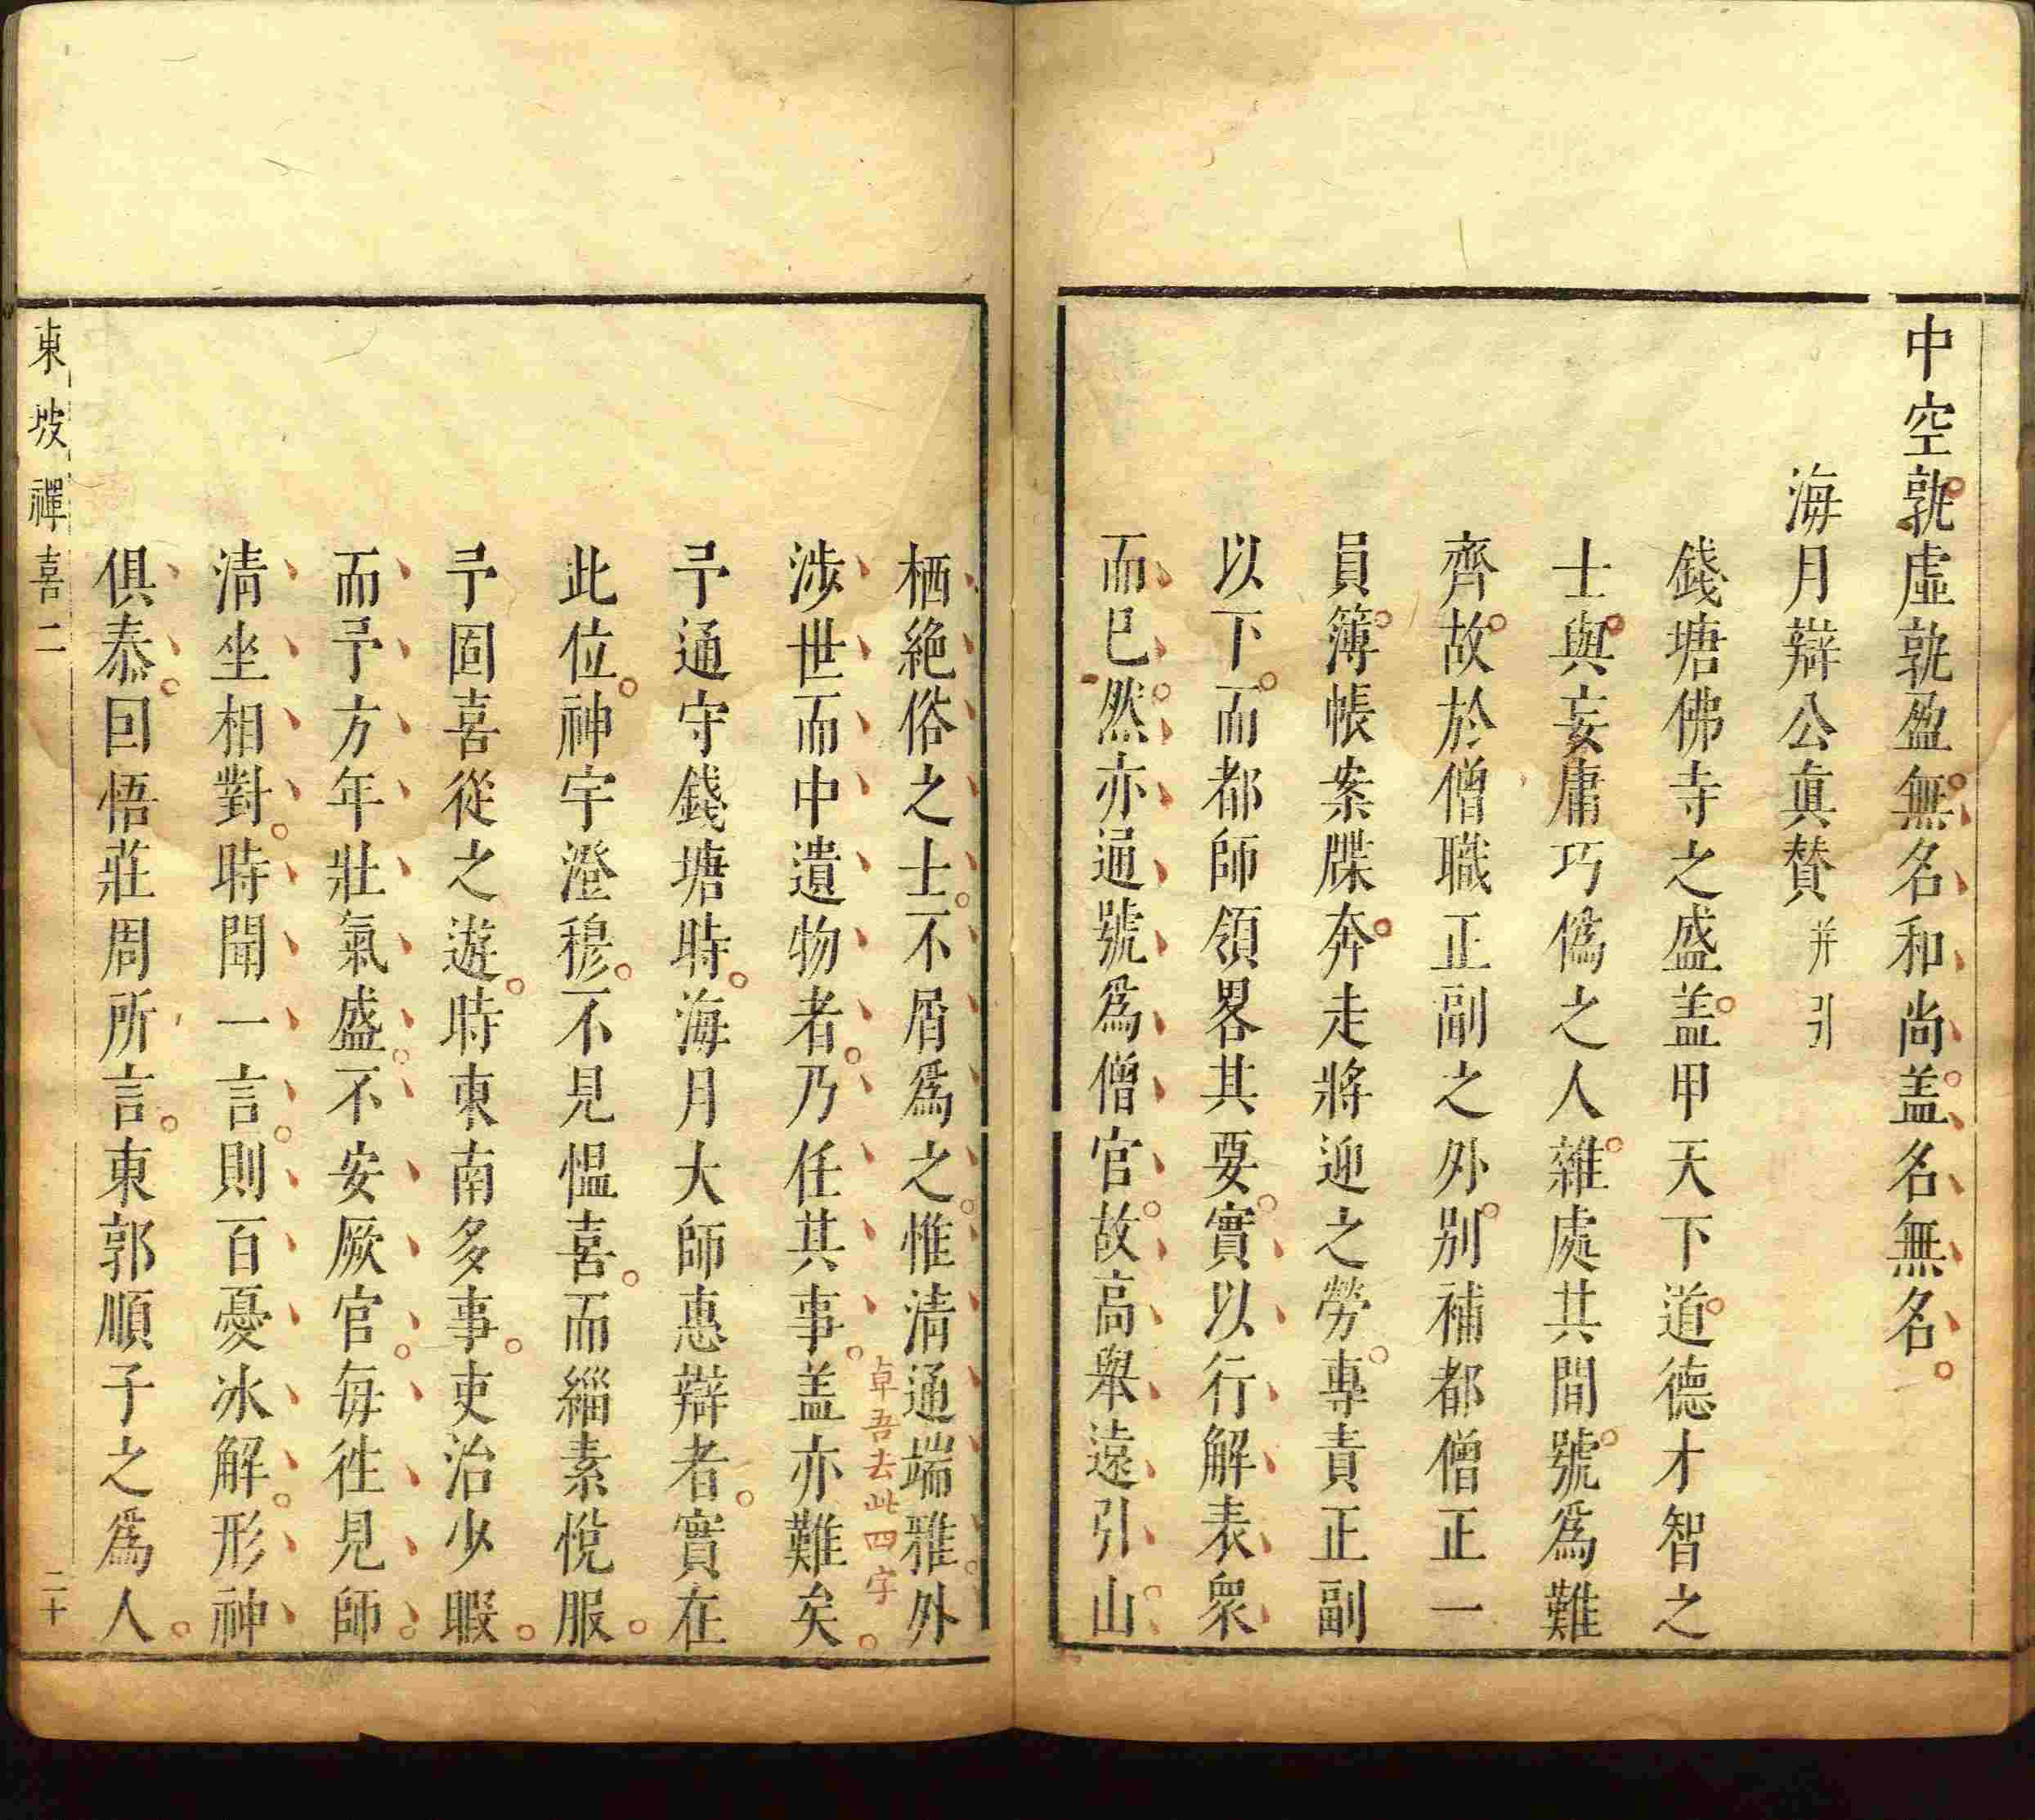 中空孰虛孰盈無名和尚盖名無名
海月辯公真賛并引
錢塘佛寺之盛盖甲天下道德才智之
士與妄庸巧僞之人雜處共間號爲難
齊故於僧職正副之外別補都僧正一
員簿帳案牒奔走將迎之勞專責正副
以下而都師領畧其要實以行解表衆
而已然亦通號爲僧官故高舉遠引山
栖絶俗之士不屑爲之惟清通端雅外
涉世而中遺物者乃任其事盖亦難矣
卓吾去此四字
予通守錢塘時海月大師惠辯者實在
此位神宇澄穆不見愠喜而緇素悅服
予固喜從之遊時東南多事吏治少暇
而予方年壯氣盛不安厥官每徃見師
清坐相對時聞一言則百憂冰解形神
俱泰囙悟莊周所言東郭順子之爲人
東坡禪喜二
二十